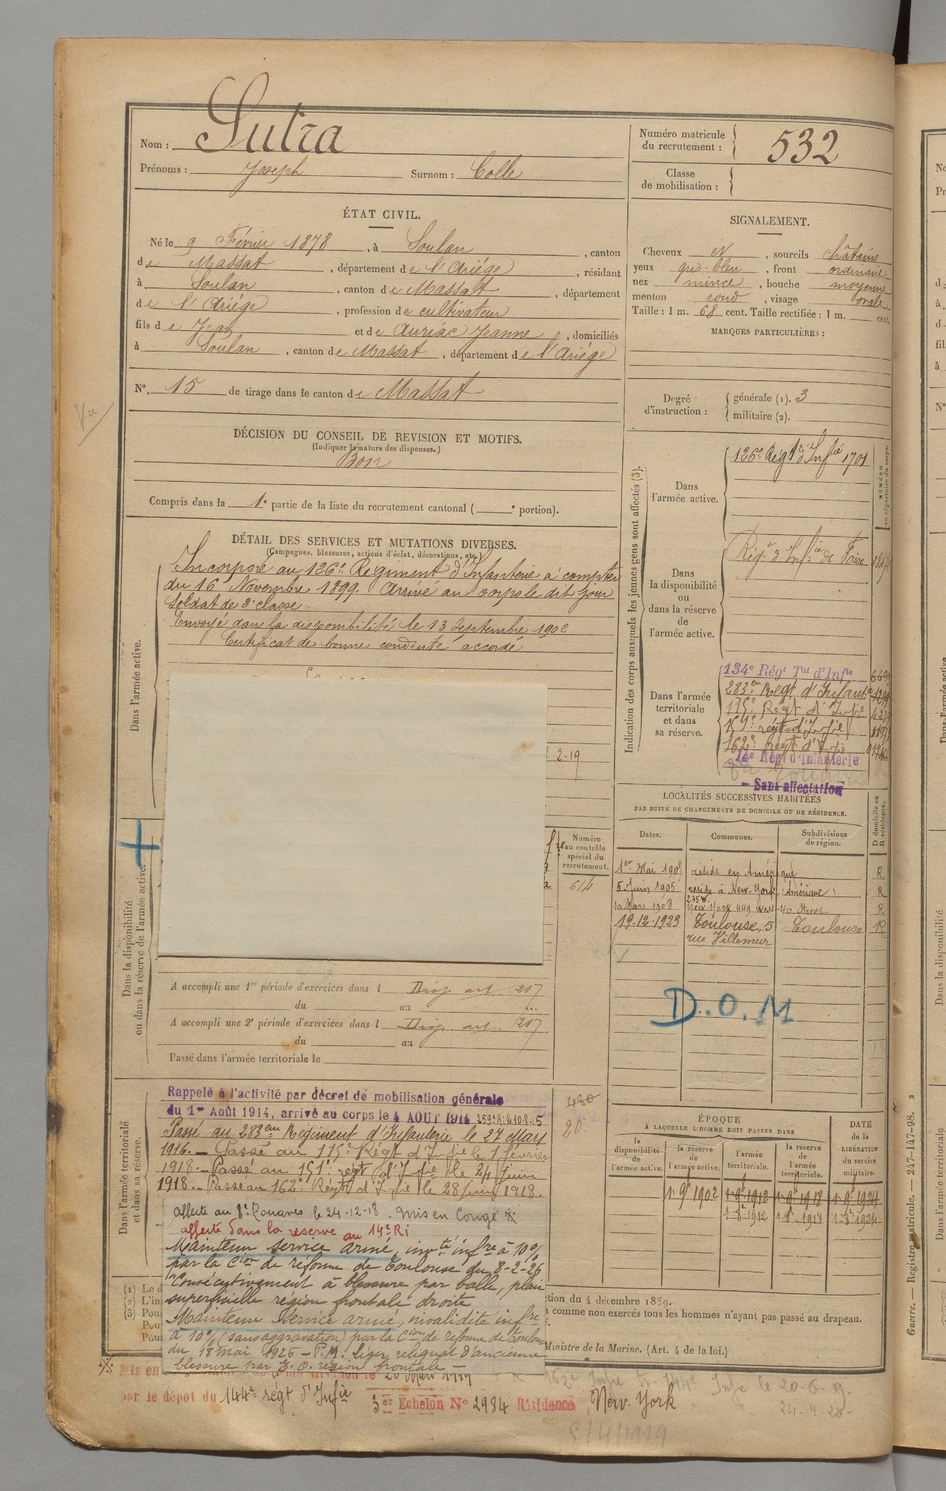 Nom : Sutra
Prénoms : Joseph Surnom : Colle
ÉTAT CIVIL.
Né le 9 Février 1878, à Soulan, canton
de Massat, département de l'Ariége, résidant
à Soulan, canton de Massat, département
de l'Ariége, profession de cultivateur
fils de Jean et de Auriac Jeanne, domiciliés
à Soulan, canton de Massat, département de l'Ariége
N° 15 de tirage dans le canton de Massat
Vu
DÉCISION DU CONSEIL DE REVISION ET MOTIFS.
(Indiquer la nature des dispenses.)
Bon
Compris dans la 1e partie de la liste du recrutement cantonal ( e portion).
DÉTAIL DES SERVICES ET MUTATIONS DIVERSES.
(Campagnes, blessures, actions d'éclat, décorations, etc.)
Dans l'armée active.
Incorporé au 126e Régiment d'Infanterie à compter
du 16 Novembre 1899. Arrivé au corps le dit jour
Soldat de 2e classe.
Envoyé dans la disponibilité le 13 Septembre 1902
Certificat de bonne conduite accordé
2-19
Dans la disponibilité
ou dans la réserve de l'armée active.
Numéro
au contrôle
spécial du
recrutement.
614
A accompli une 1re période d'exercices dans l Disp. art. 207
du au
A accompli une 2e période d'exercices dans l Disp. art. 207
du au
Passé dans l'armée territoriale le
Dans l'armée territoriale
et dans sa réserve.
Rappelé à l'activité par décret de mobilisation générale
du 1er Août 1914, arrivé au corps le 4 AOUT 1914
Passé au 283e Régiment d'Infanterie le 27 Mars
1916. — Passé au 115e Régt d'Infie le 1 février
1918. — Passé au 151e régt d'Infie le 24 Juin
1918. — Passé au 162e Régt d'Infie le 28 Juin 1918.
affecté au 8e Zouaves le 24-12-18. Mis en Congé
affecté dans la réserve au 14e RI
Maintenu service armé, invté infre à 10%
par la Cion de réforme de Toulouse du 8-2-26
Consécutivement à blessure par balle, plaie
superficielle région frontale droite
Maintenu Service armé, invalidité infre
à 10% (sans aggravation) par la Cion de réforme de Toulouse
du 18 mai 1926 — P.M. léger reliquat d'ancienne
blessure par E.O. région frontale —
Mis en
par le dépôt du 144e régt d'Infie
3er Echelon N° 2984 Résidence New-York
tion du 4 décembre 1889.
comme non exercés tous les hommes n'ayant pas passé au drapeau.
Ministre de la Marine. (Art. 4 de la loi.)
Numéro matricule
du recrutement : 532
Classe
de mobilisation :
SIGNALEMENT.
Cheveux N, sourcils châtains
yeux gris-bleu, front ordinaire
nez mince, bouche moyenne
menton rond, visage ovale
Taille : 1 m. 68 cent. Taille rectifiée : 1 m. cent.
MARQUES PARTICULIÈRES :
Degré
d'instruction :
générale (1). 3
militaire (2).
Indication des corps auxquels les jeunes gens sont affectés (3).
Dans
l'armée active.
126e Régt d'Infie 1701
Dans
la disponibilité
ou
dans la réserve
de
l'armée active.
Régt d'Infie de Foix
Dans l'armée
territoriale
et dans
sa réserve.
134e Régt Tal d'Infie
283e Régt d'Infanterie
115e Régt d'Infie
151e régt d'Infie
162e régt d'Infie
14e Régt d'Infanterie
— Sans affectation
LOCALITÉS SUCCESSIVES HABITÉES
PAR SUITE DE CHANGEMENTS DE DOMICILE OU DE RÉSIDENCE.
Dates. Communes. Subdivisions
de région. D domicile ou
R résidence.
réside en Amérique R
5 Juin 1905 réside à New-York (Amérique) R
Mars 1908 New York 449 West 40 R
19-12-1923 Toulouse, 5 Toulouse R
rue Villemur
D.O.M
ÉPOQUE
À LAQUELLE L'HOMME DOIT PASSER DANS
DATE
de la
LIBÉRATION
du service
militaire.
la
disponibilité
de l'armée active.
la réserve
de
l'armée active.
l'armée
territoriale.
la réserve
de
l'armée
territoriale.
1-9bre 1902 1-9bre 1912 1-9bre 1918 1-9bre 1924
Guerre. — Registre matricule. — 247-147-98.